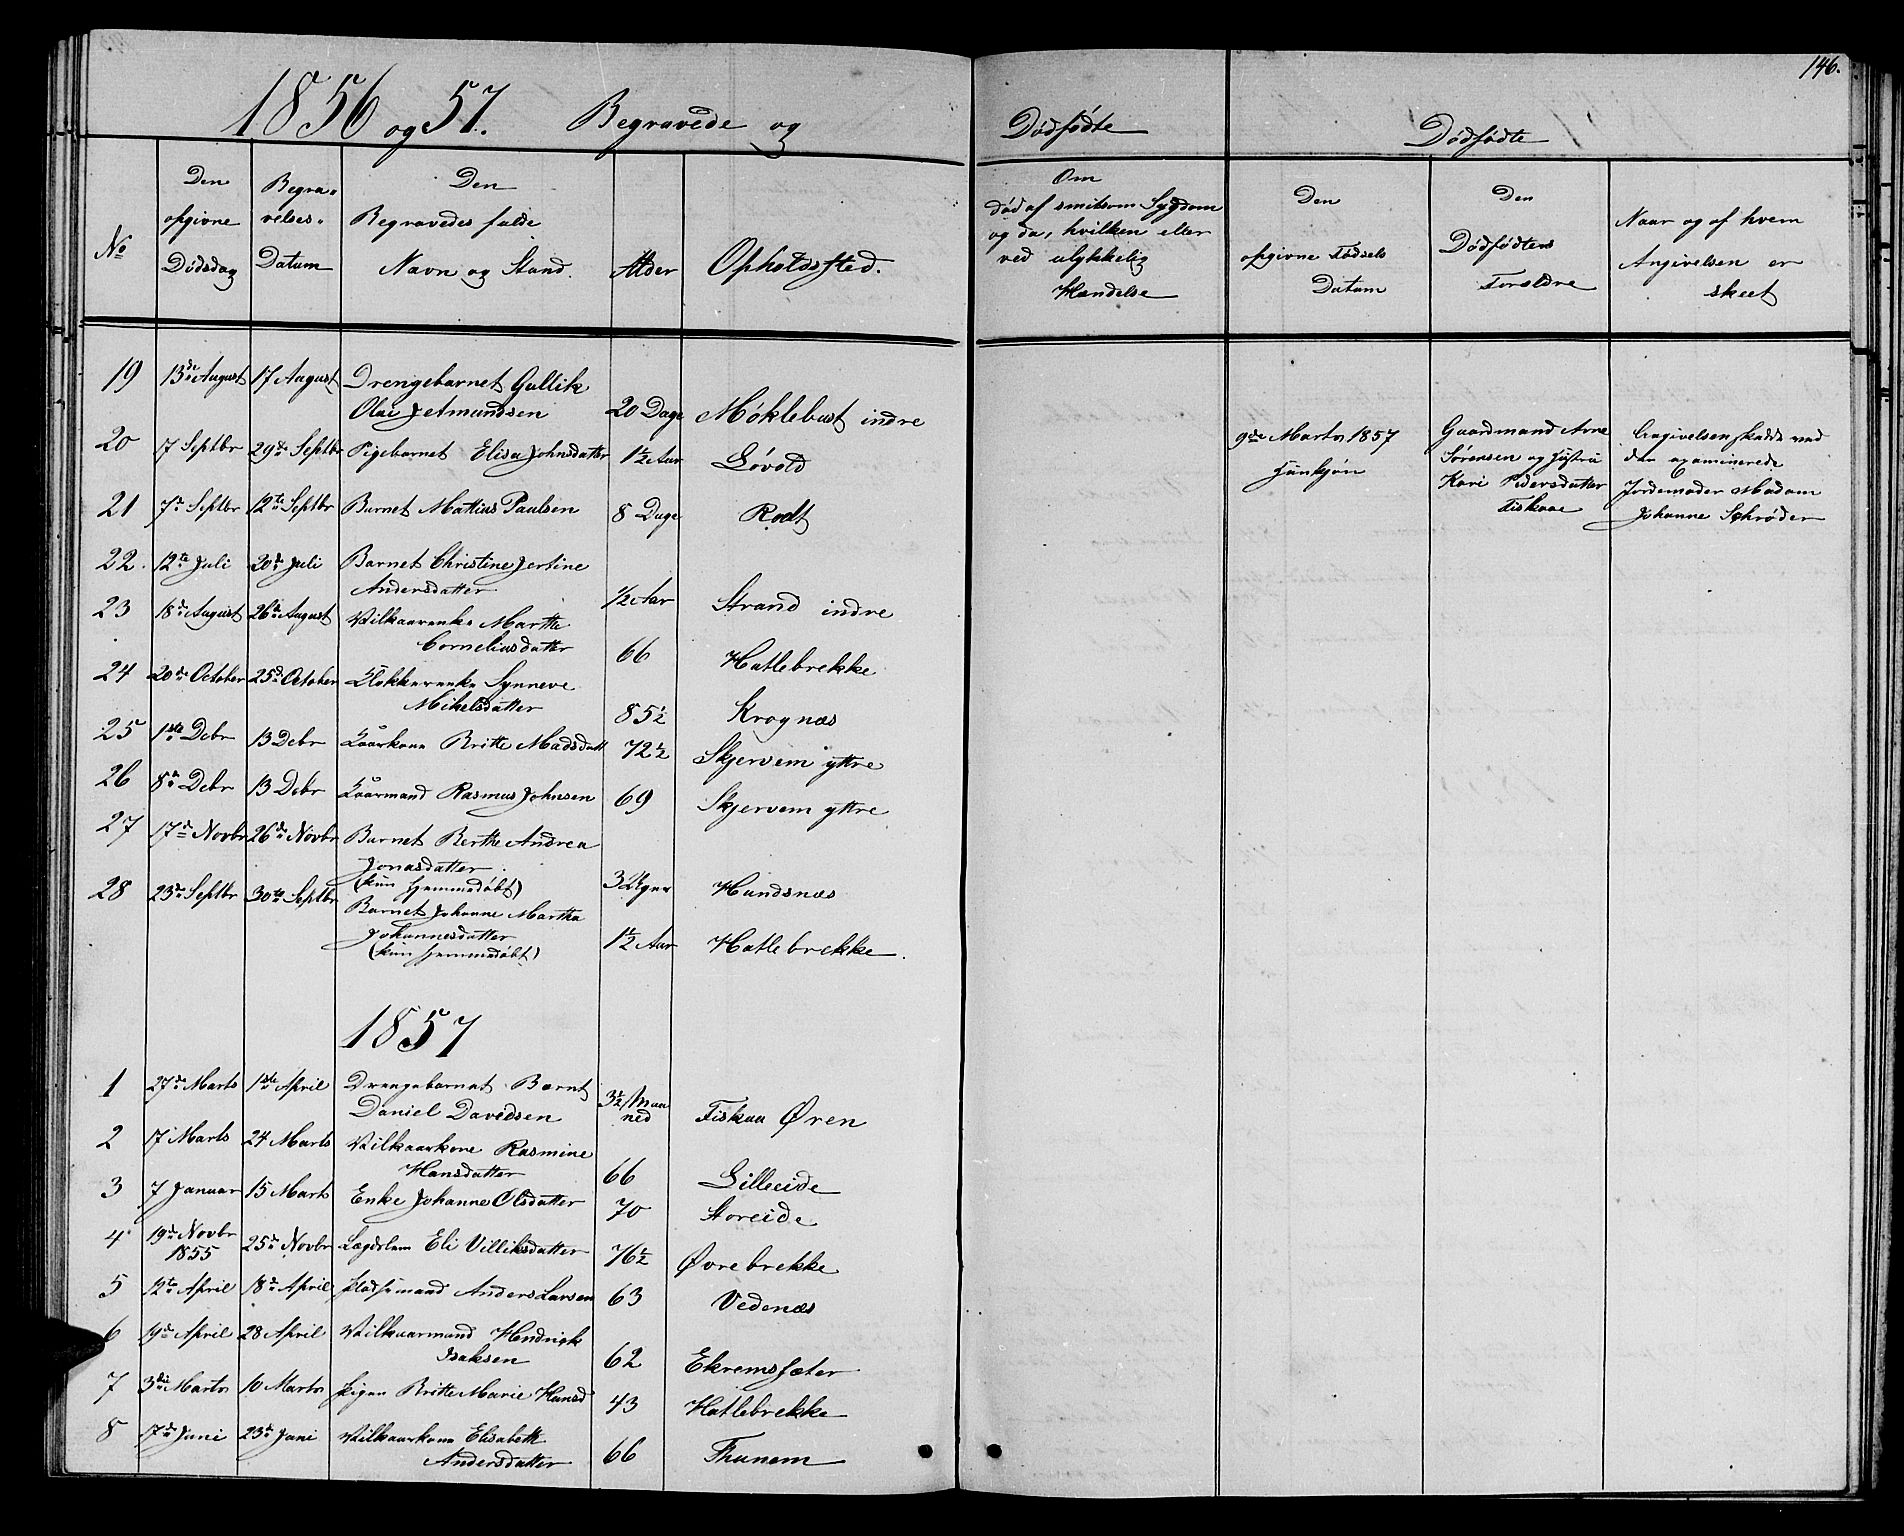 146.
1856 og 57. Begravede og Dødfødte Dødfødte
No
Den opgivne Dødsdag
Begravelses Datum
Den Begravedes fulde Navn og Stand.
Alder
Opholdssted.
Om død af smitsom Sygdom og da, hvilken eller ved ulykkelig Hændelse
Den opgivne Fødsels Datum
Den Dødfødtes Forældre
Naar og af hvem Angivelsen er skeet
19 13de August 17 August Drengebarnet Gullik
Olai Jetmundsen 20 Dage Møklebust indre
20 7 Septbr 29de Septbr Pigebarnet Elisa Johnsdatter 1½ Aar Løvold
21 7de Septbr 12te Septbr Barnet Mattias Paulsen 8 Dage Rodt
22. 12te Juli 20de Juli Barnet Christine Jertine
Andersdatter ½ Aar Strand indre
23 18de August 26de August Vilkaarenke Marthe
Corneliusdatter 66 Hatlebrekke
24 20de October 25de October Klokkerenke Synneve
Mikelsdatter 85½ Krognæs
25 1ste Debr 13 Debr Kaarkone Britte Madsdatt 72½ Skjervem yttre
26 8de Debr 13 Debr Kaarmand Rasmus Johnsen 69 Skjervem yttre
27 17de Novbr 26de Novbr Barnet Berthe Andrea
Jonasdatter.
(kun hjemmedøbt) 3 Ugur Hundsnæs
28 23de Septbr 30te Septbr Barnet Johanne Martha
Johannesdatter
(kun hjemmedøbt) 1½ Aar Hatlebrekke.
1857
1 27de Marts 1ste April Drengebarnet Bernt
Daniel Davidsen 3½ Maaned Fiskaa Øren
2 17 Marts 24 Marts Vilkaarkone Rasmine
Hansdatter 66 Lilleeide
3 7 Januar 15 Marts Enke Johanne Olsdatter 70 Storeide
4 19de Novbr 1855 25de Novbr Lægdslem Eli Villiksdatter 76½ Øvrebrekke
5 12te April 18de April Pladsemand Anders Larsen 63 Vedenæs
6 19de April 28 April Vilkaarmand Hendrick
Isaksen 62 Ekremsæter
7 3die Marts 10 Marts Pigen Britte Marie Hansd 43 Hatlebrekke
8 17de Juni 23de Juni Vilkaarkone Elisabeth
Andersdatter 66 Thunem
9de Marts 1857
Hankjøn
Gaardmand Arne
Sørensen og Hustru
Kari Pedersdatter
Fiskaae
Angivelsen skedde ved
den examinerede
Jordemoder Madam
Johanne Schrøder